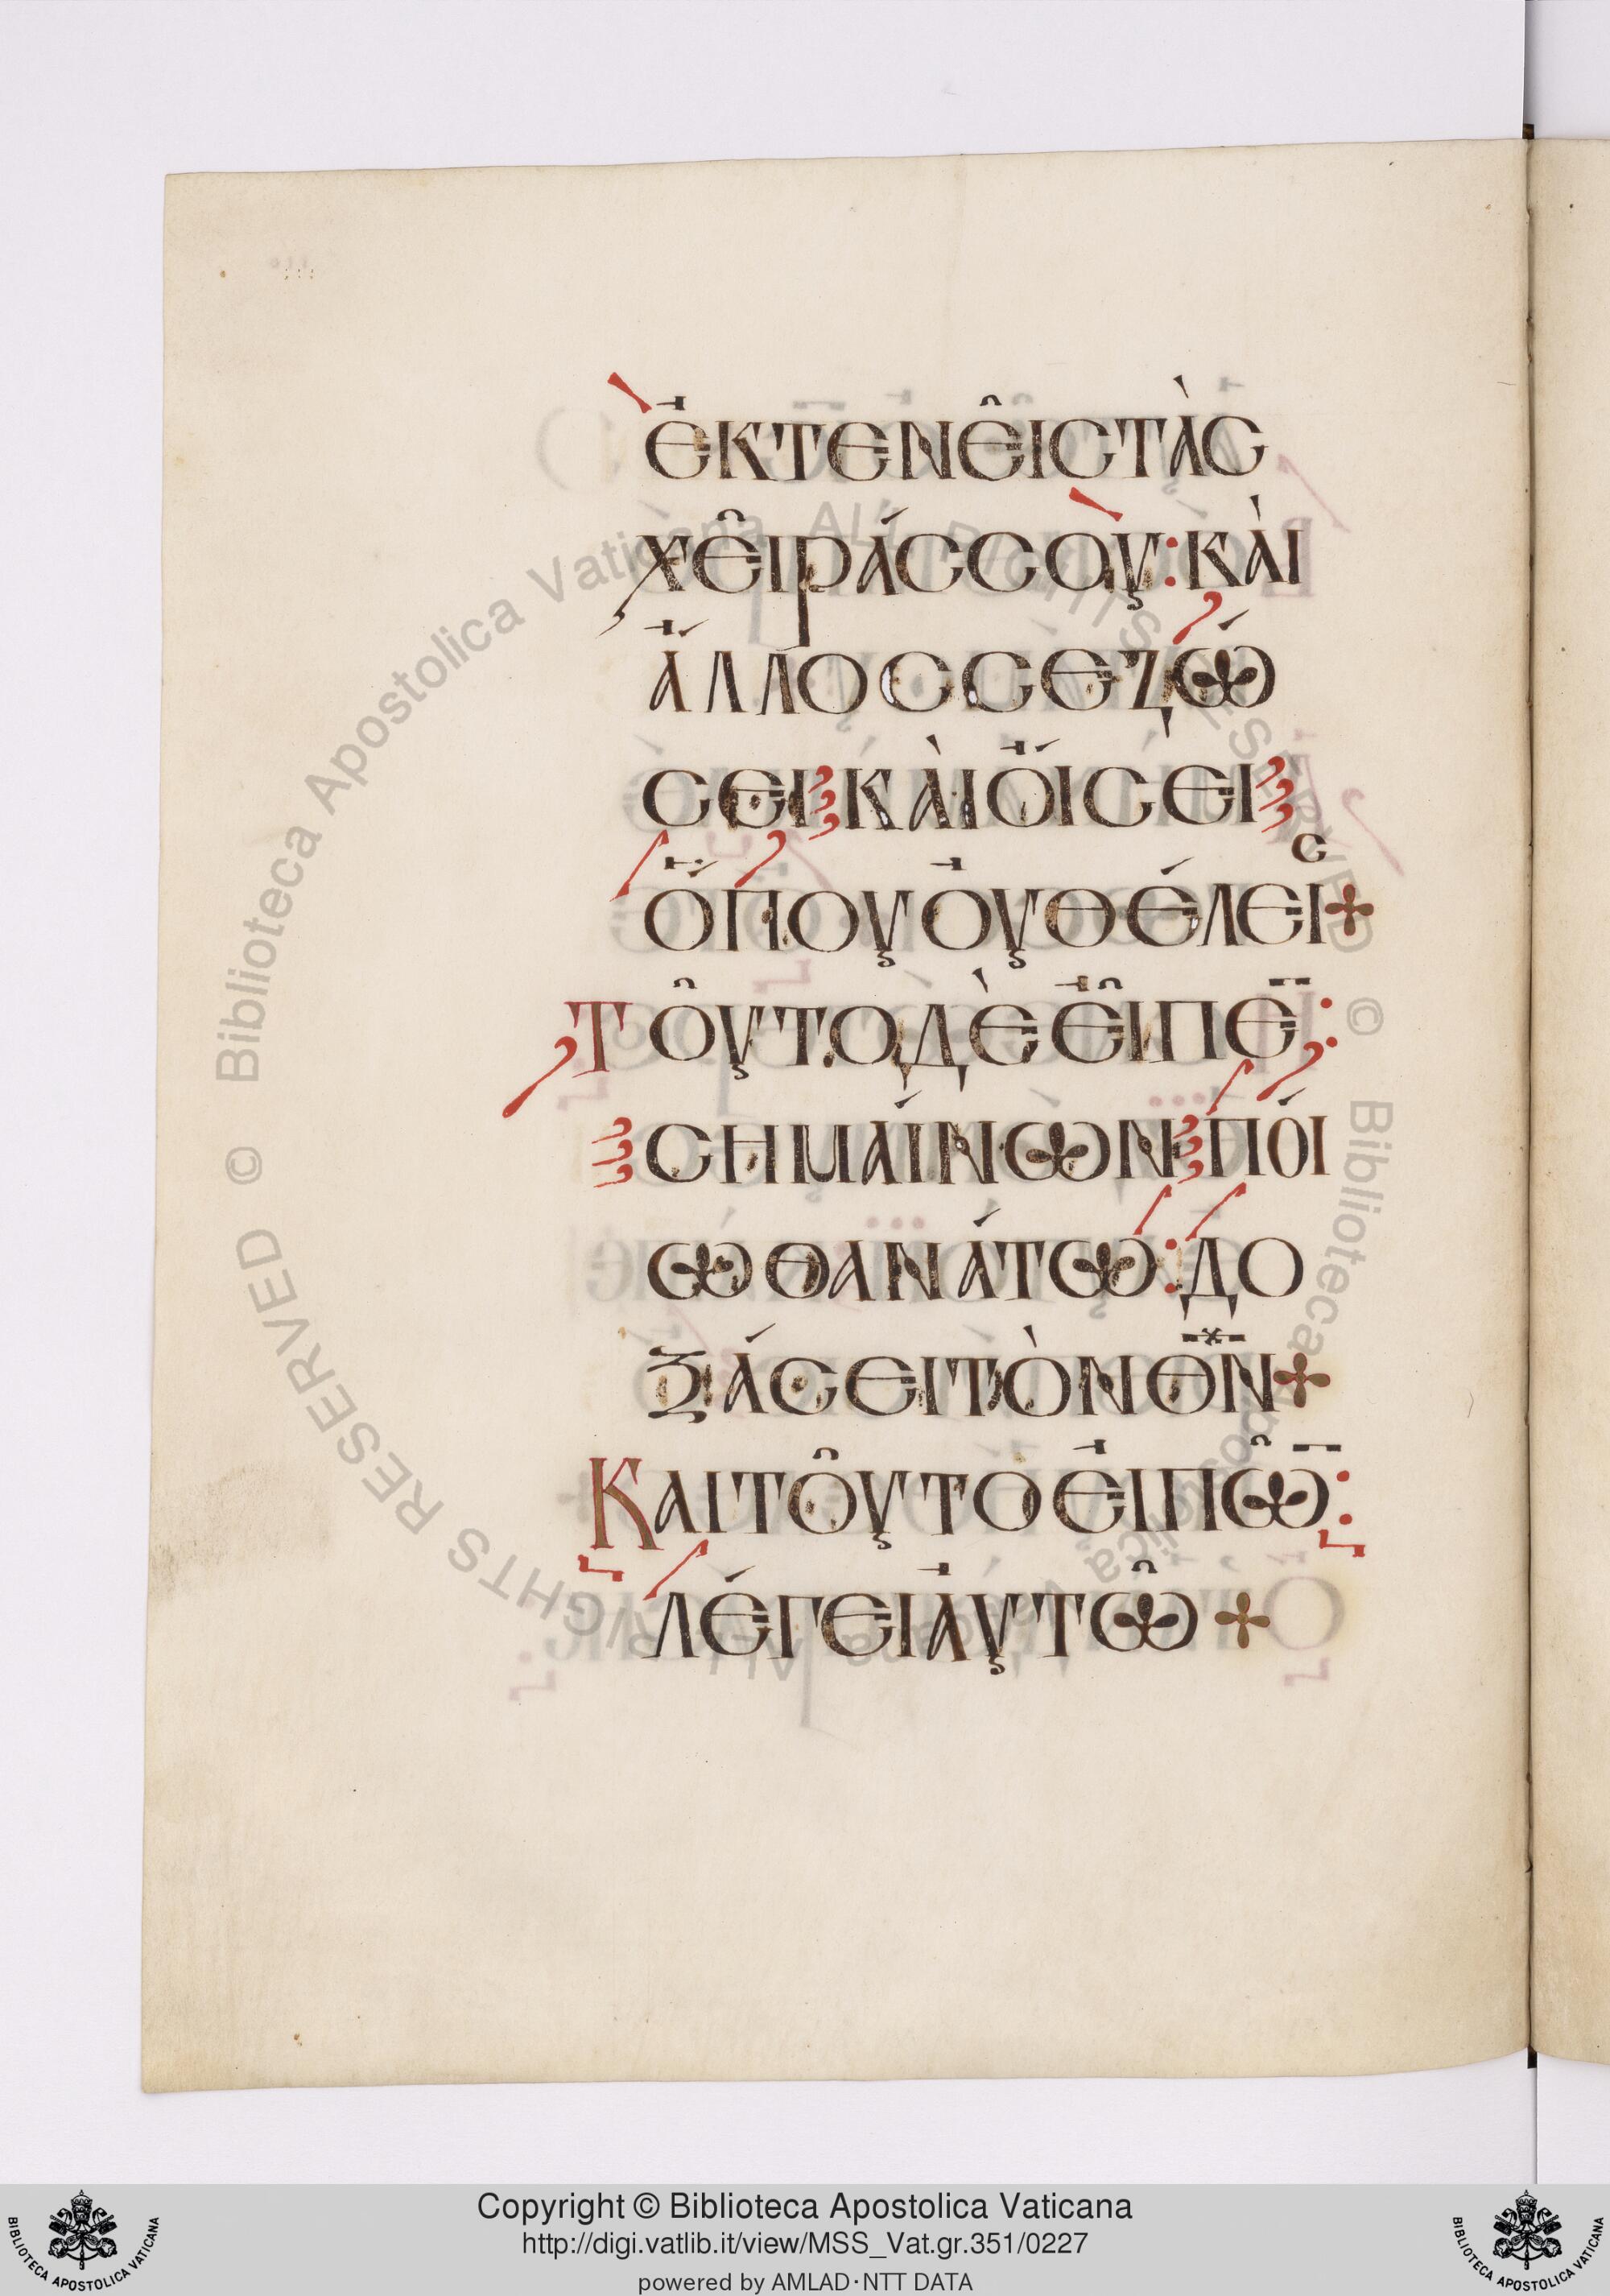 ἐκτενεῖσ τὰσ
χεῖράσ σου: καὶ
ἄλλοσ σε ζώ
σει καὶ οἴσει
ὅπου οὐ θέλεισ+
Τοῦτο δὲ εἶπε̄:
σημαίνων ποί
ω θανάτω: δο
ξάσει τὸν θ̅ν̅+
Και τοῦτο εἰπῶ̄:
λέγει ἀυτῶ+
Copyright © Biblioteca Apostolica Vaticana
http://digi.vatlib.it/view/MSS_Vat.gr.351/0227
powered by AMLAD·NTT DATA
BIBLIOTECA APOSTOLICA VATICANA
BIBLIOTECA APOSTOLICA VATICANA
© Biblioteca Apostolica Vaticana ALL RIGHTS RESERVED © Biblioteca Apostolica Vaticana ALL RIGHTS RESERVED